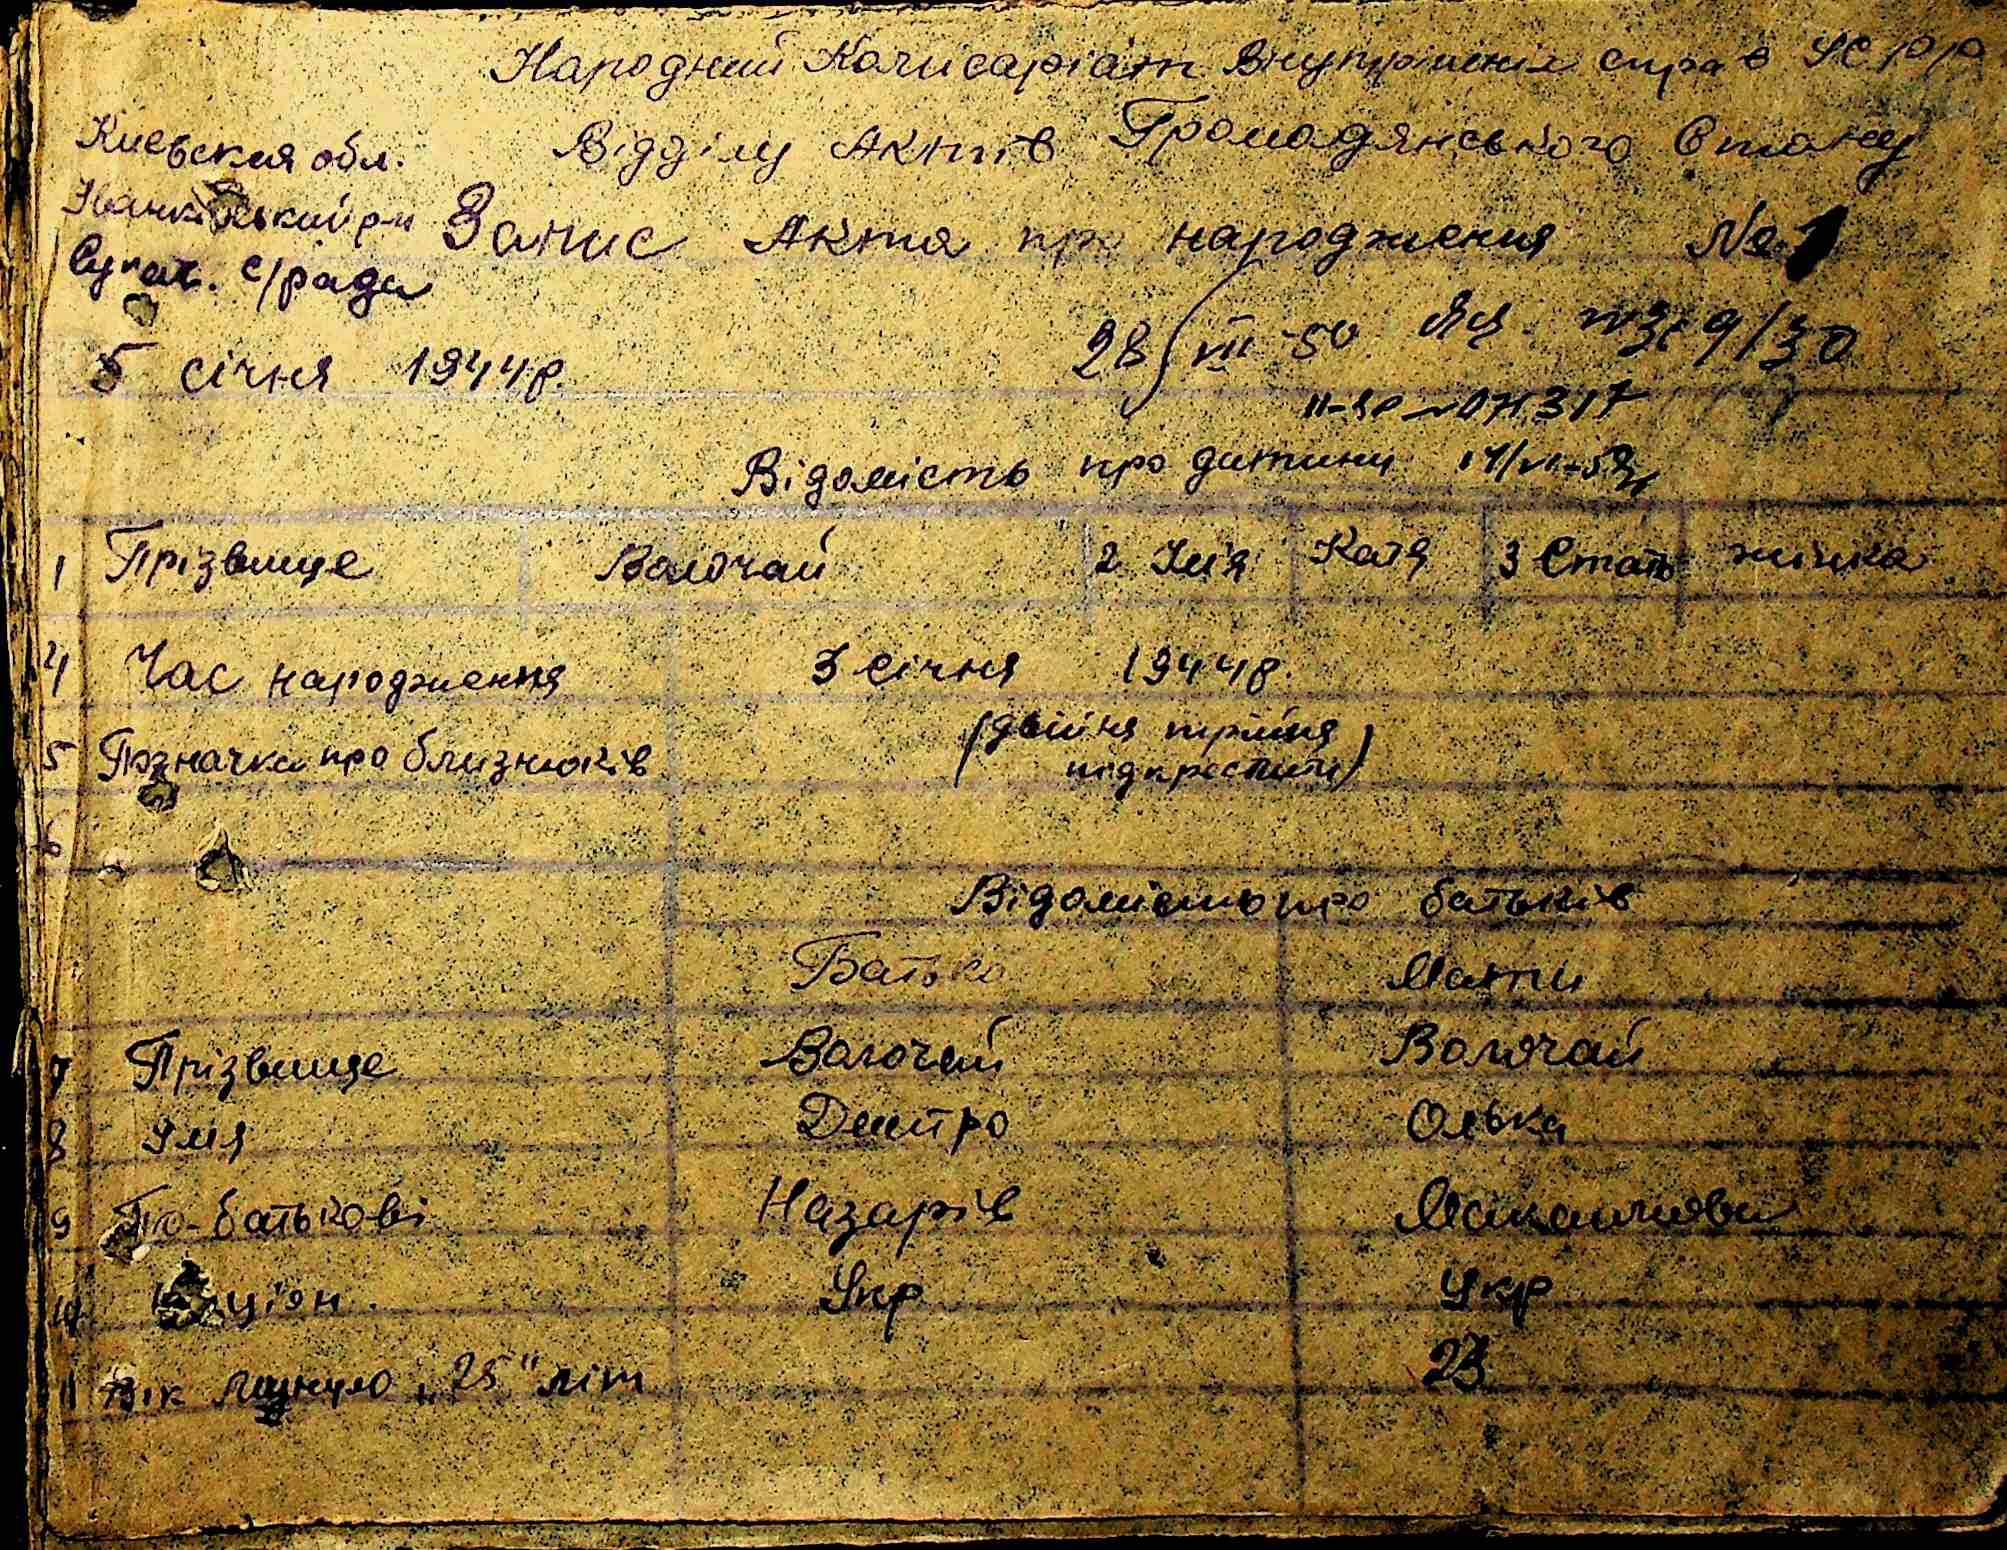 Народний Комисаріат Внутрішніх справ УСРР
Киевская обл. Відділу Актів Громадянського Стану
Іванківський р-н Запис Акта про народження № 1
с/рада
5 січня 1944 р.
28/VII-50 9/30
Відомість про дитину
1 Прізвище Волочай 2 Імя Катя 3 Стать жінка
4 Час народження 3 січня 1944 р.
5 Позначка про близнюків (двійня трійня
підкреслити)
6
Відомість про батьків
Батько Мати
7 Прізвище Волочай Волочай
8 Імя Дмитро Олька
9 По-батькові Назарів
10 Націон. Укр Укр
11 Вік Минуло "25" літ 23